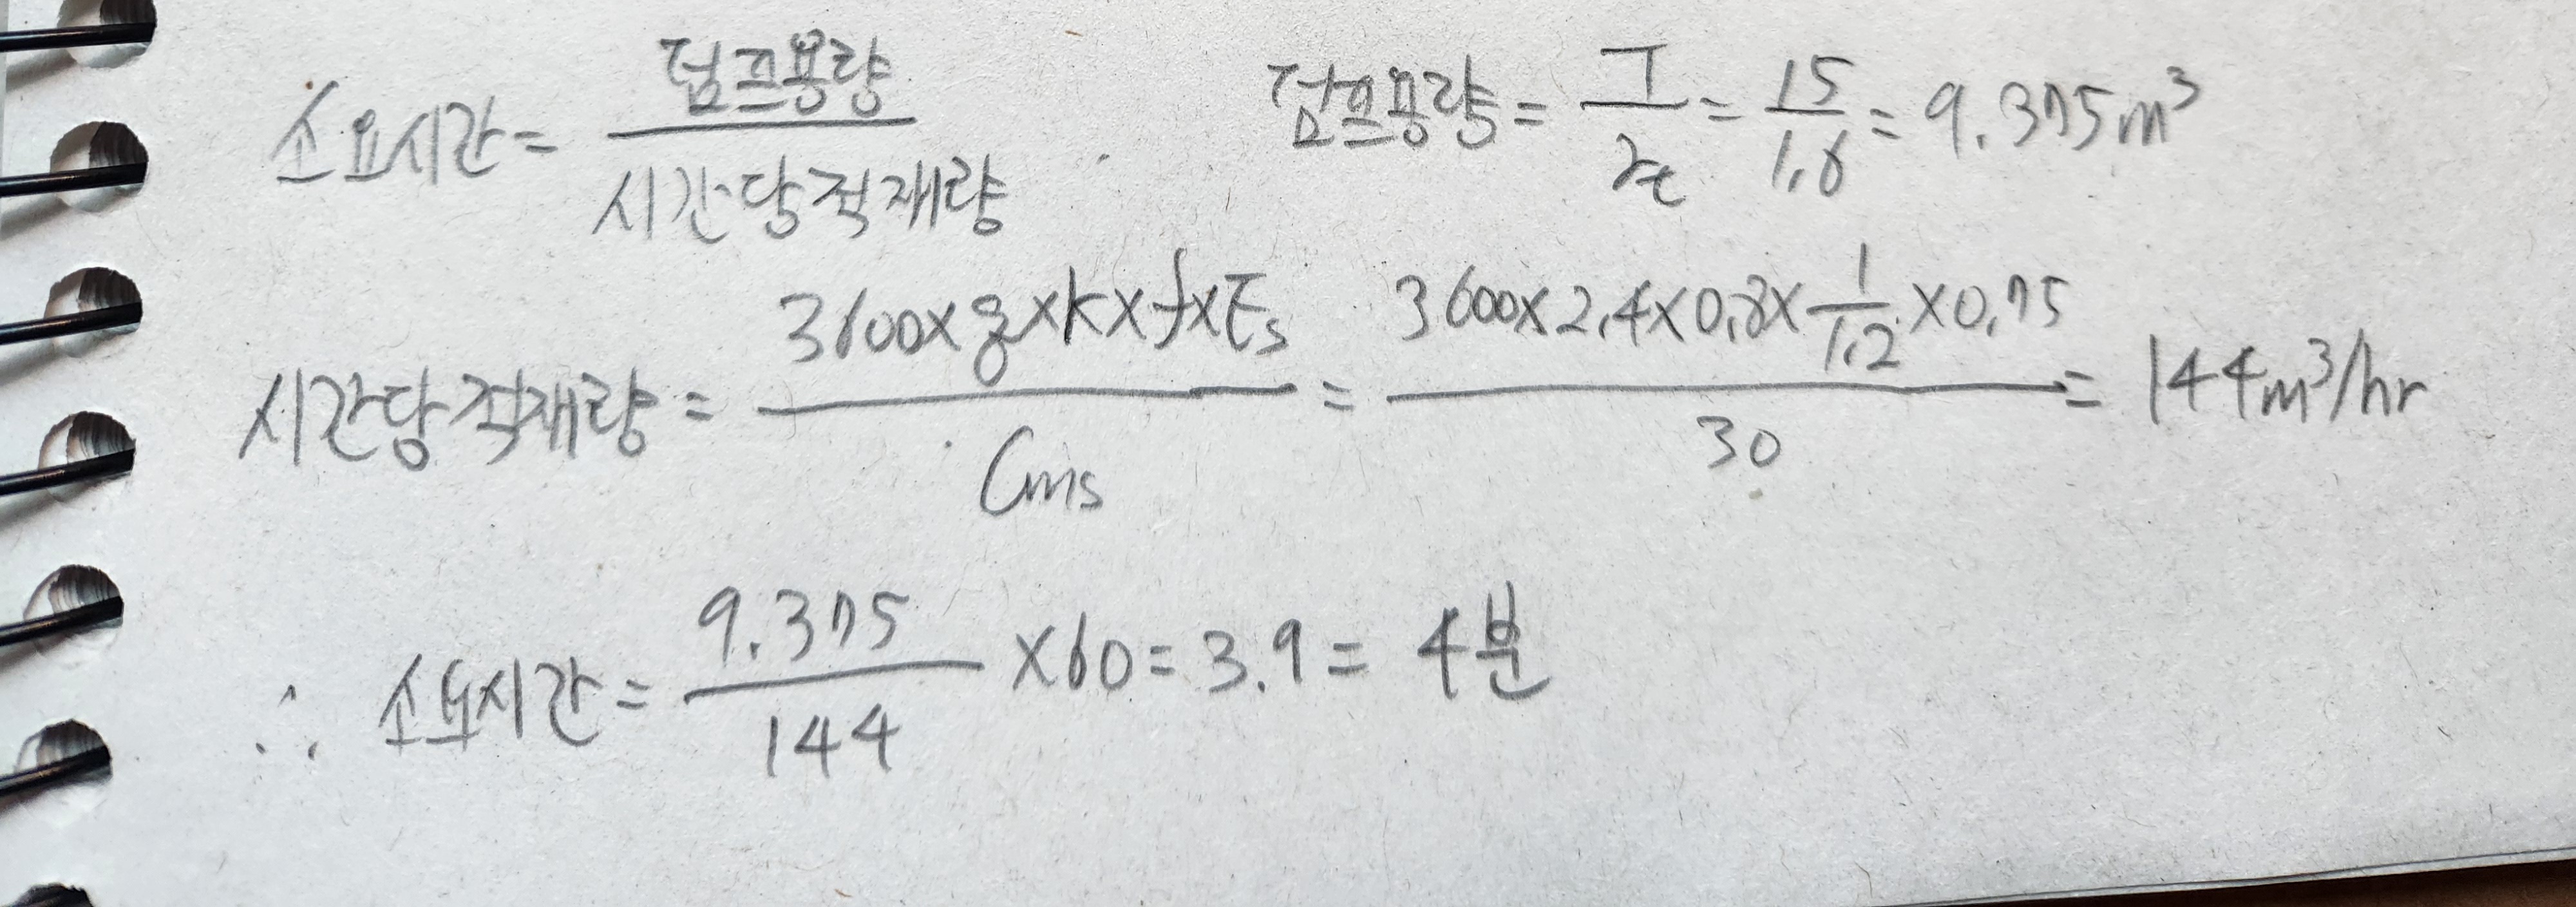 소요시간 = 덤프용량 / 시간당적재량    덤프용량 = T / γt = 15 / 1.6 = 9.375m³
시간당적재량 = 3600×q×k×f×Es / Cms = 3600×2.4×0.8×1/1.2×0.75 / 30 = 144m³/hr
∴ 소요시간 = 9.375 / 144 ×60 = 3.9 = 4분